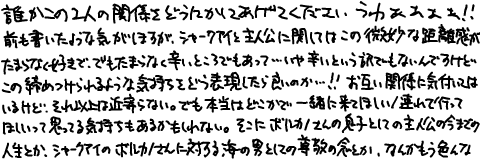 誰かこの2人の関係をどうにかしてあげてください。うわぁぁぁぁ!!
前も書いたような気がしますが、シャークアイと主人公に関してはこの微妙な距離感が
たまらなく好きで、でもたまらなく辛いところでもあって…いや辛いという訳でもないんですけど…
この締めつけられるような気持ちをどう表現したら良いのか…!! お互い関係に気付いては
いるけど、それ以上は近寄らない。でも本当はどこかで一緒に来てほしい/連れて行って
ほしいって思ってる気持ちもあるかもしれない。そこにボルカノさんの息子としての主人公の今までの
人生とか、シャークアイのボルカノさんに対する海の男としての尊敬の念とか、なんかもう色んな